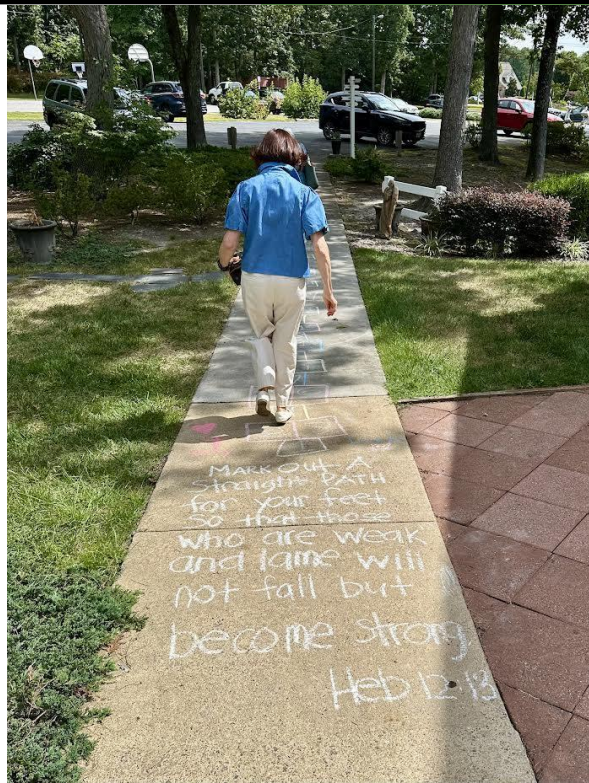 MARK OUT A
straight PATH
for your feet
so that those
who are weak
and lame will
not fall but
become strong
Heb 12:13